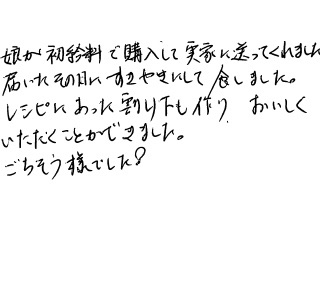 娘が初給料で購入して実家に送ってくれました
届いたその日にすきやきにして食しました。
レシピにあった割り下も作り、おいしく
いただくことができました。
ごちそう様でした!